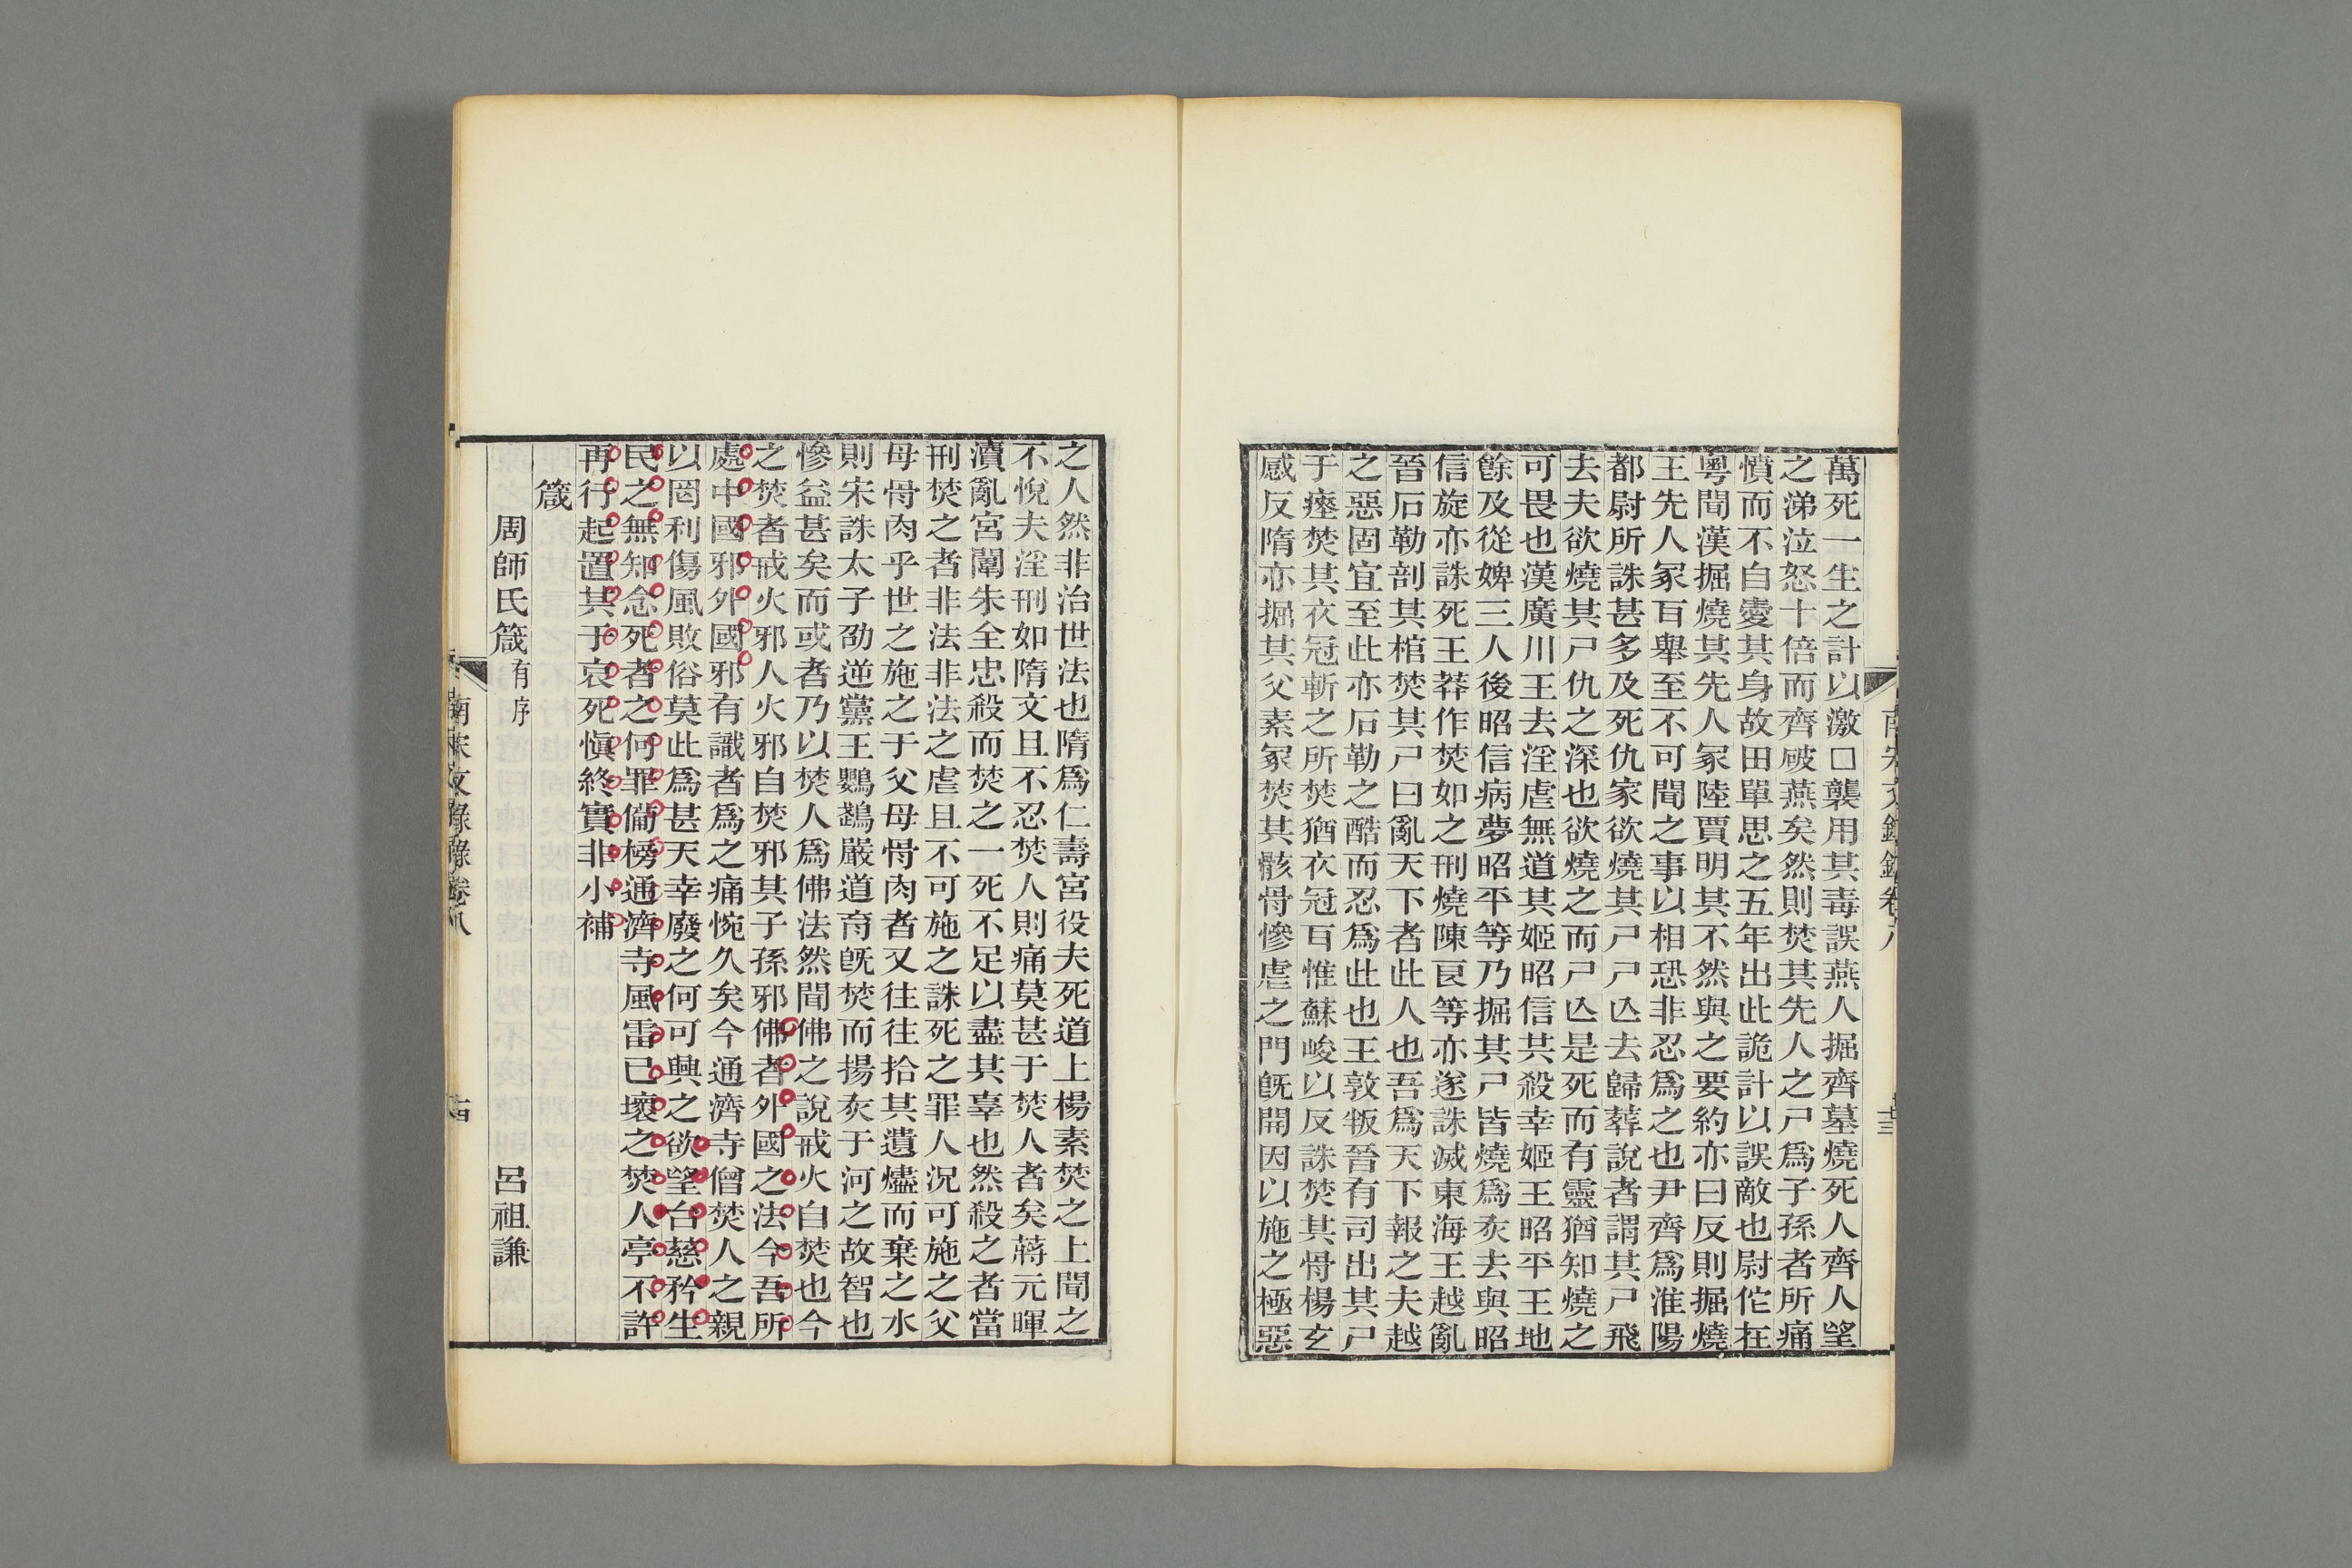 萬死一生之計以激□襲用其毒誤燕人掘齊墓燒死人齊人望
之涕泣怒十倍而齊破燕矣然則焚其先人之尸爲子孫者所痛
憤而不自愛其身故田單思之五年出此詭計以誤敵也尉佗在
粵聞漢掘燒其先人冢陸賈明其不然與之要約亦曰反則掘燒
王先人冢百舉至不可聞之事以相恐非忍爲之也尹齊爲淮陽
都尉所誅甚多及死仇家欲燒其尸尸亾去歸葬說者謂其尸飛
去夫欲燒其尸仇之深也欲燒之而尸亾是死而有靈猶知燒之
可畏也漢廣川王去淫虐無道其姬昭信共殺幸姬王昭平王地
餘及從婢三人後昭信病夢昭平等乃掘其尸皆燒爲灰去與昭
信旋亦誅死王莽作焚如之刑燒陳良等亦遂誅滅東海王越亂
晉石勒剖其棺焚其尸曰亂天下者此人也吾爲天下報之夫越
之惡固宜至此亦石勒之酷而忍爲此也王敦叛晉有司出其尸
于瘞焚其衣冠斬之所焚猶衣冠耳惟蘇峻以反誅焚其骨楊玄
感反隋亦掘其父素冢焚其骸骨慘虐之門旣開因以施之極惡
南宋文錄錄卷八
十三
之人然非治世法也隋爲仁壽宮役夫死道上楊素焚之上聞之
不悅夫淫刑如隋文且不忍焚人則痛莫甚于焚人者矣蔣元暉
瀆亂宮闈朱全忠殺而焚之一死不足以盡其辜也然殺之者當
刑焚之者非法非法之虐且不可施之誅死之罪人況可施之父
母骨肉乎世之施之于父母骨肉者又往往拾其遺燼而棄之水
則宋誅太子劭逆黨王鸚鵡嚴道育旣焚而揚灰于河之故智也
慘益甚矣而或者乃以焚人爲佛法然聞佛之說戒火自焚也今
之焚者戒火邪人火邪自焚邪其子孫邪佛者外國之法今吾所
處中國邪外國邪有識者爲之痛惋久矣今通濟寺僧焚人之親
以罔利傷風敗俗莫此爲甚天幸廢之何可興之欲望台慈矜生
民之無知念死者之何罪備榜通濟寺風雷已壞之焚人亭不許
再行起置其于哀死愼終實非小補
箴
周師氏箴有序　呂祖謙
南宋文錄錄卷八
十四